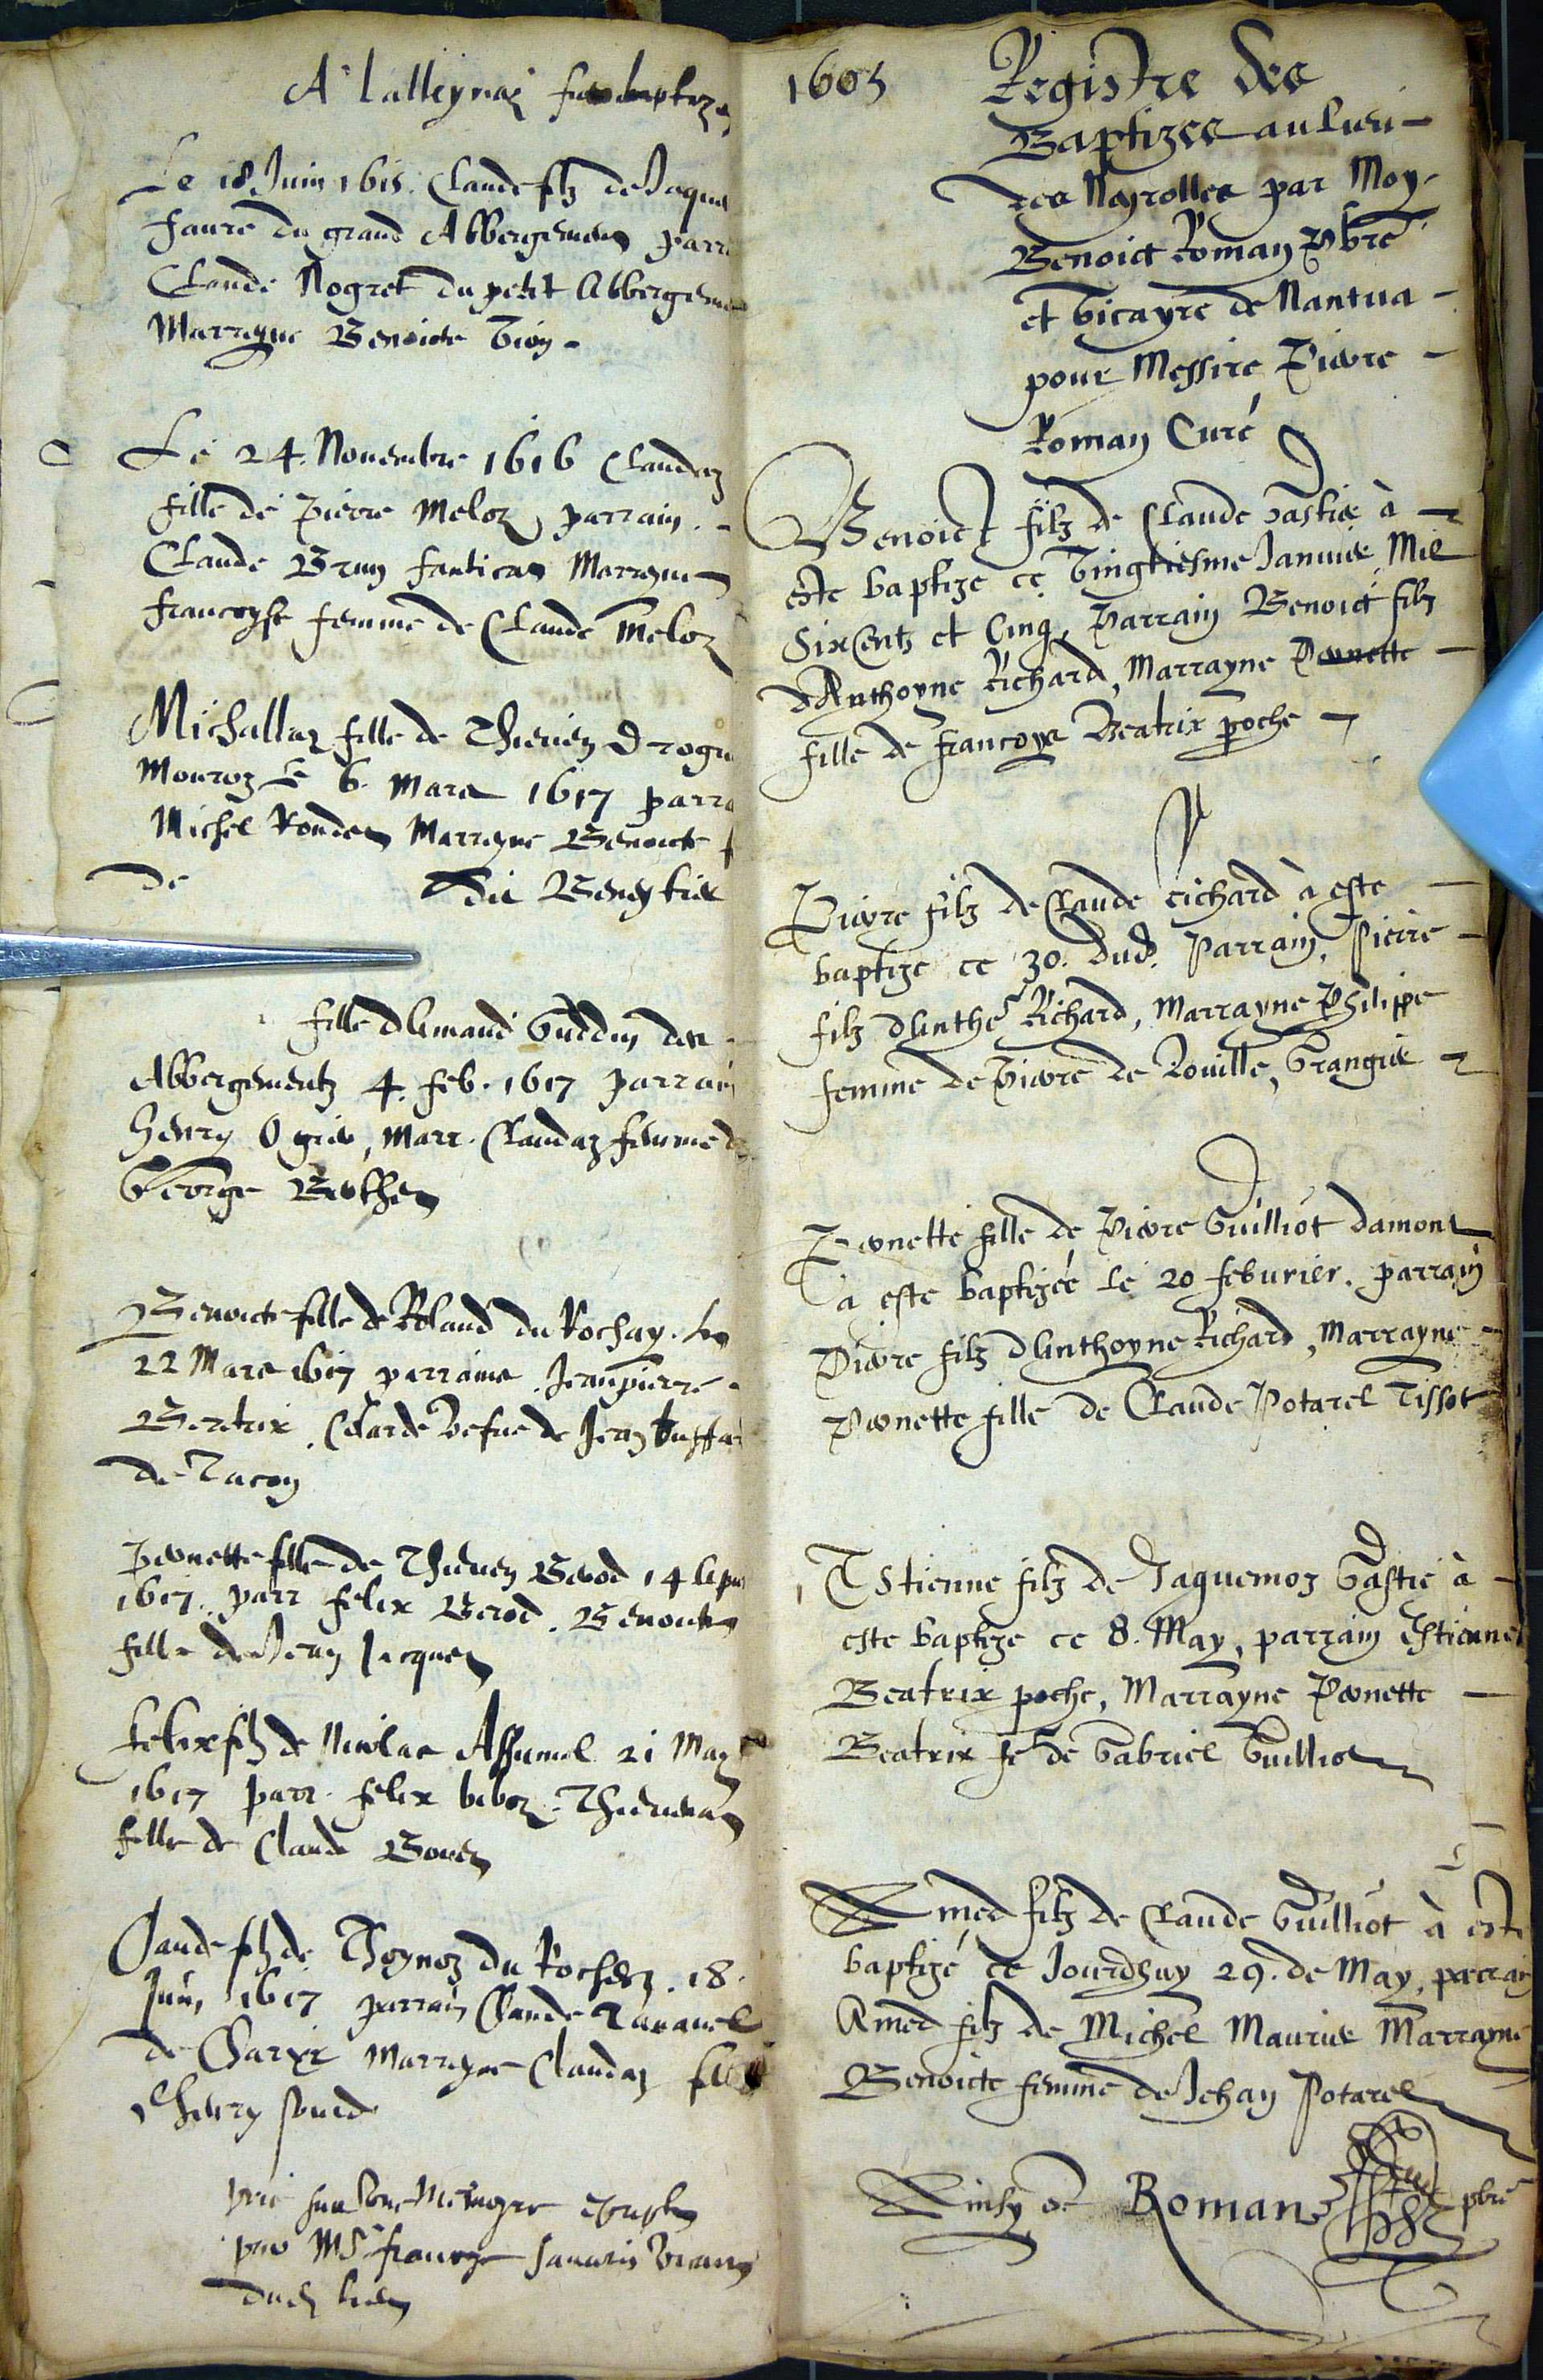 A Lalleyriaz
Le 18 Juin 1615. Claude filz de Jaque
Faure du grand Abbergemen parr
Claude Nogret du petit Abbergeme
Marrayne Benoicte
Le 24. Novembre 1616 Claudaz
fille de Pierre Meloz parrain. -
Claude Brun Marrayne
Francoyse femme de Claude Meloz
Michallaz fille de Thieven Drogu
Mouroz Le 6. Mars 1617 parra
Michel Marrayne Benoicte f
de die
fille dAimand des -
Abbergementz 4. feb. 1617 parrain
Henry Ogier, Marr. Claudaz femme de
George
Benoicte fille de Roland du Rochay. Le
22 Mars 1617 parrains Jeanpierre -
Beatrix. Clarde vefue de Jean
de Tacon
Pernette fille de Thieven Berod 14
1617. parr Felix Berod. Benoicte
fille de Jean Jacquen
Felix filz de Nicolas 21 May
1617 parr. Felix Thievenaz
fille de Claude
Claude filz de Thoynoz du Rocherz. 18.
Juin 1617 parrain Claude
de Charix Marrayne Claudaz
Henry
sur
par Mre Francoys
dud lieu
1605
Registre des
Baptizes au lieu -
des Neyrolles par Moy -
Benoict Roman Pbre
et Vicayre de Nantua -
pour Messire Pierre -
Roman Curé
Benoict filz de Claude Gastie à -
este baptize ce Vingtiesme Januier Mil
Six Centz et Cinq, Parrain Benoict filz
dAnthoyne Richard, Marrayne Pernette -
fille de Francoys Beatrix poche -
Pierre filz de Claude Richard à este -
baptize ce 30. dud. Parrain, Pierre -
filz dAnthe Richard, Marrayne Philippe
femme de Pierre de Rouille, Grangier -
Pernette fille de Pierre Guilliot damont
a este baptizée le 20 februrier. parrain
Pierre filz dAnthoyne Richard, Marrayne -
Pernette fille de Claude Potarel Tissot
Estienne filz de Jaquemoz Gastie à -
este baptize ce 8. May, parrain Estienne
Beatrix poche, Marrayne Pernette -
Beatrix fe de Gabriel Guilliot
Amed filz de Claude Guilliot à este
baptizé ce Jourdhuy 29. de May, parrain
Amed filz de Michel Maurier Marrayne
Benoicte femme de Jehan Potarel
Ainsy est Roman pbre